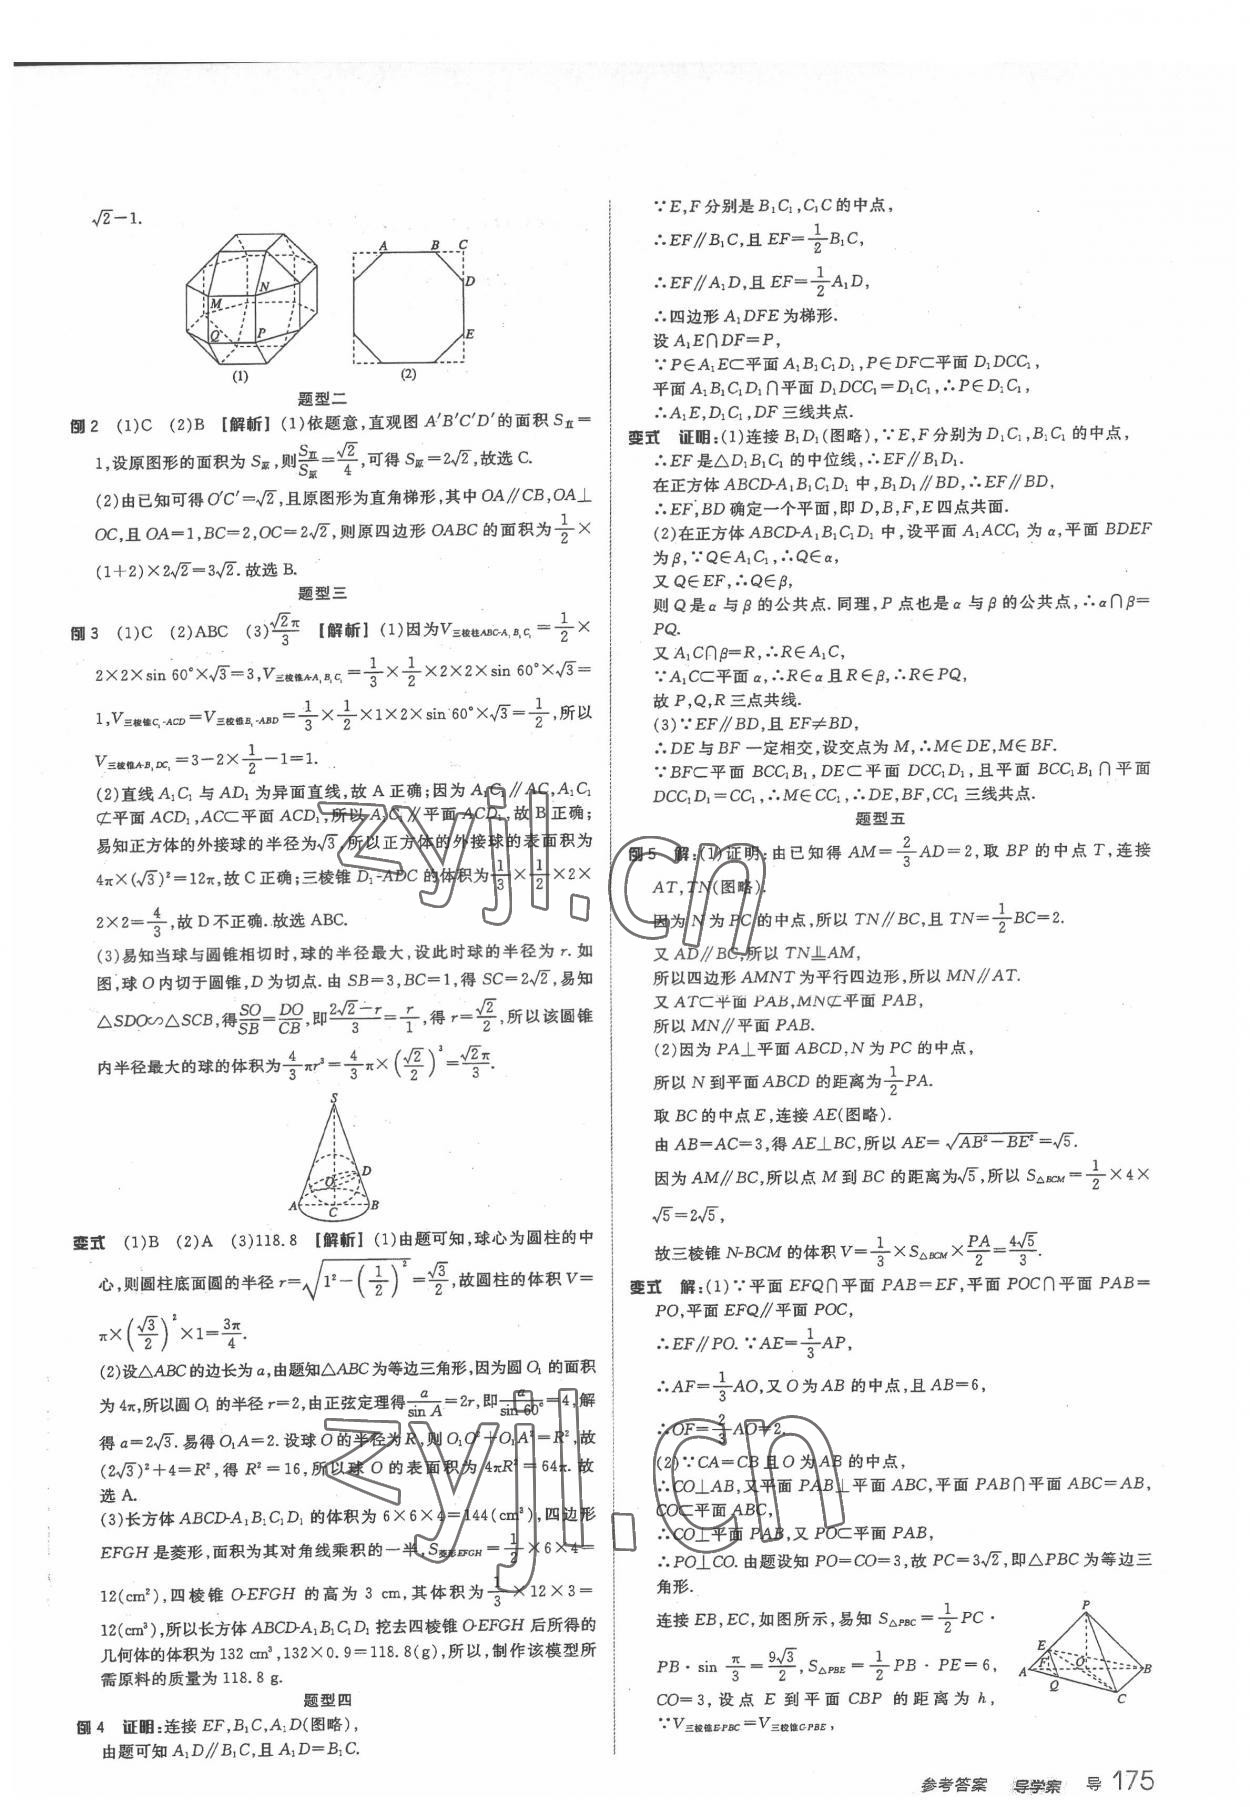 √2－1.
M N Q P
(1)
A B C D E
(2)
题型二
例2 (1)C (2)B [解析] (1)依题意,直观图 A′B′C′D′的面积 S直＝
1,设原图形的面积为 S原,则S直/S原＝√2/4,可得 S原＝2√2,故选 C.
(2)由已知可得 O′C′＝√2,且原图形为直角梯形,其中 OA∥CB,OA⊥
OC,且 OA＝1,BC＝2,OC＝2√2,则原四边形 OABC 的面积为1/2×
(1＋2)×2√2＝3√2.故选 B.
题型三
例3 (1)C (2)ABC (3)√2π/3 [解析] (1)因为V三棱柱ABC-A₁B₁C₁＝1/2×
2×2×sin 60°×√3＝3,V三棱锥A-A₁B₁C₁＝1/3×1/2×2×2×sin 60°×√3＝
1,V三棱锥C₁-ACD＝V三棱锥B₁-ABD＝1/3×1/2×1×2×sin 60°×√3＝1/2,所以
V三棱锥A-B₁DC₁＝3－2×1/2－1＝1.
(2)直线 A₁C₁ 与 AD₁ 为异面直线,故 A 正确;因为 A₁C₁∥AC,A₁C₁
⊄平面 ACD₁,AC⊂平面 ACD₁,所以 A₁C₁∥平面 ACD₁,故 B 正确;
易知正方体的外接球的半径为√3,所以正方体的外接球的表面积为
4π×(√3)²＝12π,故 C 正确;三棱锥 D₁-ADC 的体积为1/3×1/2×2×
2×2＝4/3,故 D 不正确.故选 ABC.
(3)易知当球与圆锥相切时,球的半径最大,设此时球的半径为 r. 如
图,球 O 内切于圆锥,D 为切点.由 SB＝3,BC＝1,得 SC＝2√2,易知
△SDO∽△SCB,得SO/SB＝DO/CB,即(2√2－r)/3＝r/1,得 r＝√2/2,所以该圆锥
内半径最大的球的体积为4/3πr³＝4/3π×(√2/2)³＝√2π/3.
S D O A C B
变式 (1)B (2)A (3)118.8 [解析] (1)由题可知,球心为圆柱的中
心,则圆柱底面圆的半径 r＝√(1²－(1/2)²)＝√3/2,故圆柱的体积 V＝
π×(√3/2)²×1＝3π/4.
(2)设△ABC 的边长为 a,由题知△ABC 为等边三角形,因为圆 O₁ 的面积
为 4π,所以圆 O₁ 的半径 r＝2,由正弦定理得a/sin A＝2r,即a/sin 60°＝4,解
得 a＝2√3.易得 O₁A＝2.设球 O 的半径为 R,则 O₁O²＋O₁A²＝R²,故
(2√3)²＋4＝R²,得 R²＝16,所以球 O 的表面积为 4πR²＝64π.故
选 A.
(3)长方体 ABCD-A₁B₁C₁D₁ 的体积为 6×6×4＝144(cm³),四边形
EFGH 是菱形,面积为其对角线乘积的一半,S菱形EFGH＝1/2×6×4＝
12(cm²),四棱锥 O-EFGH 的高为 3 cm,其体积为1/3×12×3＝
12(cm³),所以长方体 ABCD-A₁B₁C₁D₁ 挖去四棱锥 O-EFGH 后所得的
几何体的体积为 132 cm³,132×0.9＝118.8(g),所以,制作该模型所
需原料的质量为 118.8 g.
题型四
例4 证明:连接 EF,B₁C,A₁D(图略),
由题可知 A₁D∥B₁C,且 A₁D＝B₁C.
∵E,F 分别是 B₁C₁,C₁C 的中点,
∴EF∥B₁C,且 EF＝1/2B₁C,
∴EF∥A₁D,且 EF＝1/2A₁D,
∴四边形 A₁DFE 为梯形.
设 A₁E∩DF＝P,
∵P∈A₁E⊂平面 A₁B₁C₁D₁,P∈DF⊂平面 D₁DCC₁,
平面 A₁B₁C₁D₁∩平面 D₁DCC₁＝D₁C₁,∴P∈D₁C₁,
∴A₁E,D₁C₁,DF 三线共点.
变式 证明:(1)连接 B₁D₁(图略),∵E,F 分别为 D₁C₁,B₁C₁ 的中点,
∴EF 是△D₁B₁C₁ 的中位线,∴EF∥B₁D₁.
在正方体 ABCD-A₁B₁C₁D₁ 中,B₁D₁∥BD,∴EF∥BD,
∴EF,BD 确定一个平面,即 D,B,F,E 四点共面.
(2)在正方体 ABCD-A₁B₁C₁D₁ 中,设平面 A₁ACC₁ 为 α,平面 BDEF
为 β,∵Q∈A₁C₁,∴Q∈α,
又 Q∈EF,∴Q∈β,
则 Q 是 α 与 β 的公共点.同理,P 点也是 α 与 β 的公共点,∴α∩β＝
PQ.
又 A₁C∩β＝R,∴R∈A₁C,
∵A₁C⊂平面 α,∴R∈α 且 R∈β,∴R∈PQ,
故 P,Q,R 三点共线.
(3)∵EF∥BD,且 EF≠BD,
∴DE 与 BF 一定相交,设交点为 M,∴M∈DE,M∈BF.
∵BF⊂平面 BCC₁B₁,DE⊂平面 DCC₁D₁,且平面 BCC₁B₁∩平面
DCC₁D₁＝CC₁,∴M∈CC₁,∴DE,BF,CC₁ 三线共点.
题型五
例5 解:(1)证明:由已知得 AM＝2/3AD＝2,取 BP 的中点 T,连接
AT,TN(图略).
因为 N 为 PC 的中点,所以 TN∥BC,且 TN＝1/2BC＝2.
又 AD∥BC,所以 TN⊥AM,
所以四边形 AMNT 为平行四边形,所以 MN∥AT.
又 AT⊂平面 PAB,MN⊄平面 PAB,
所以 MN∥平面 PAB.
(2)因为 PA⊥平面 ABCD,N 为 PC 的中点,
所以 N 到平面 ABCD 的距离为1/2PA.
取 BC 的中点 E,连接 AE(图略).
由 AB＝AC＝3,得 AE⊥BC,所以 AE＝√(AB²－BE²)＝√5.
因为 AM∥BC,所以点 M 到 BC 的距离为√5,所以 S△BCM＝1/2×4×
√5＝2√5,
故三棱锥 N-BCM 的体积 V＝1/3×S△BCM×PA/2＝4√5/3.
变式 解:(1)∵平面 EFQ∩平面 PAB＝EF,平面 POC∩平面 PAB＝
PO,平面 EFQ∥平面 POC,
∴EF∥PO.∵AE＝1/3AP,
∴AF＝1/3AO,又 O 为 AB 的中点,且 AB＝6,
∴OF＝2/3AO＝2.
(2)∵CA＝CB 且 O 为 AB 的中点,
∴CO⊥AB,又平面 PAB⊥平面 ABC,平面 PAB∩平面 ABC＝AB,
CO⊂平面 ABC,
∴CO⊥平面 PAB,又 PO⊂平面 PAB,
∴PO⊥CO.由题设知 PO＝CO＝3,故 PC＝3√2,即△PBC 为等边三
角形.
连接 EB,EC,如图所示,易知 S△PBC＝1/2PC·
PB·sin π/3＝9√3/2,S△PBE＝1/2PB·PE＝6,
CO＝3,设点 E 到平面 CBP 的距离为 h,
∵V三棱锥E-PBC＝V三棱锥C-PBE,
P E F A O B Q C
zyjl.cn
zyjl.cn
参考答案 导学案 导 175